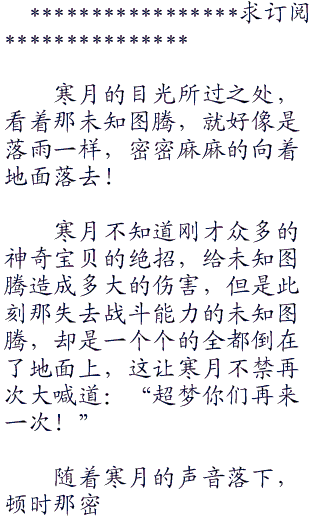 *****************求订阅
***************
寒月的目光所过之处，
看着那未知图腾，就好像是
落雨一样，密密麻麻的向着
地面落去！
寒月不知道刚才众多的
神奇宝贝的绝招，给未知图
腾造成多大的伤害，但是此
刻那失去战斗能力的未知图
腾，却是一个个的全都倒在
了地面上，这让寒月不禁再
次大喊道：“超梦你们再来
一次！”
随着寒月的声音落下，
顿时那密